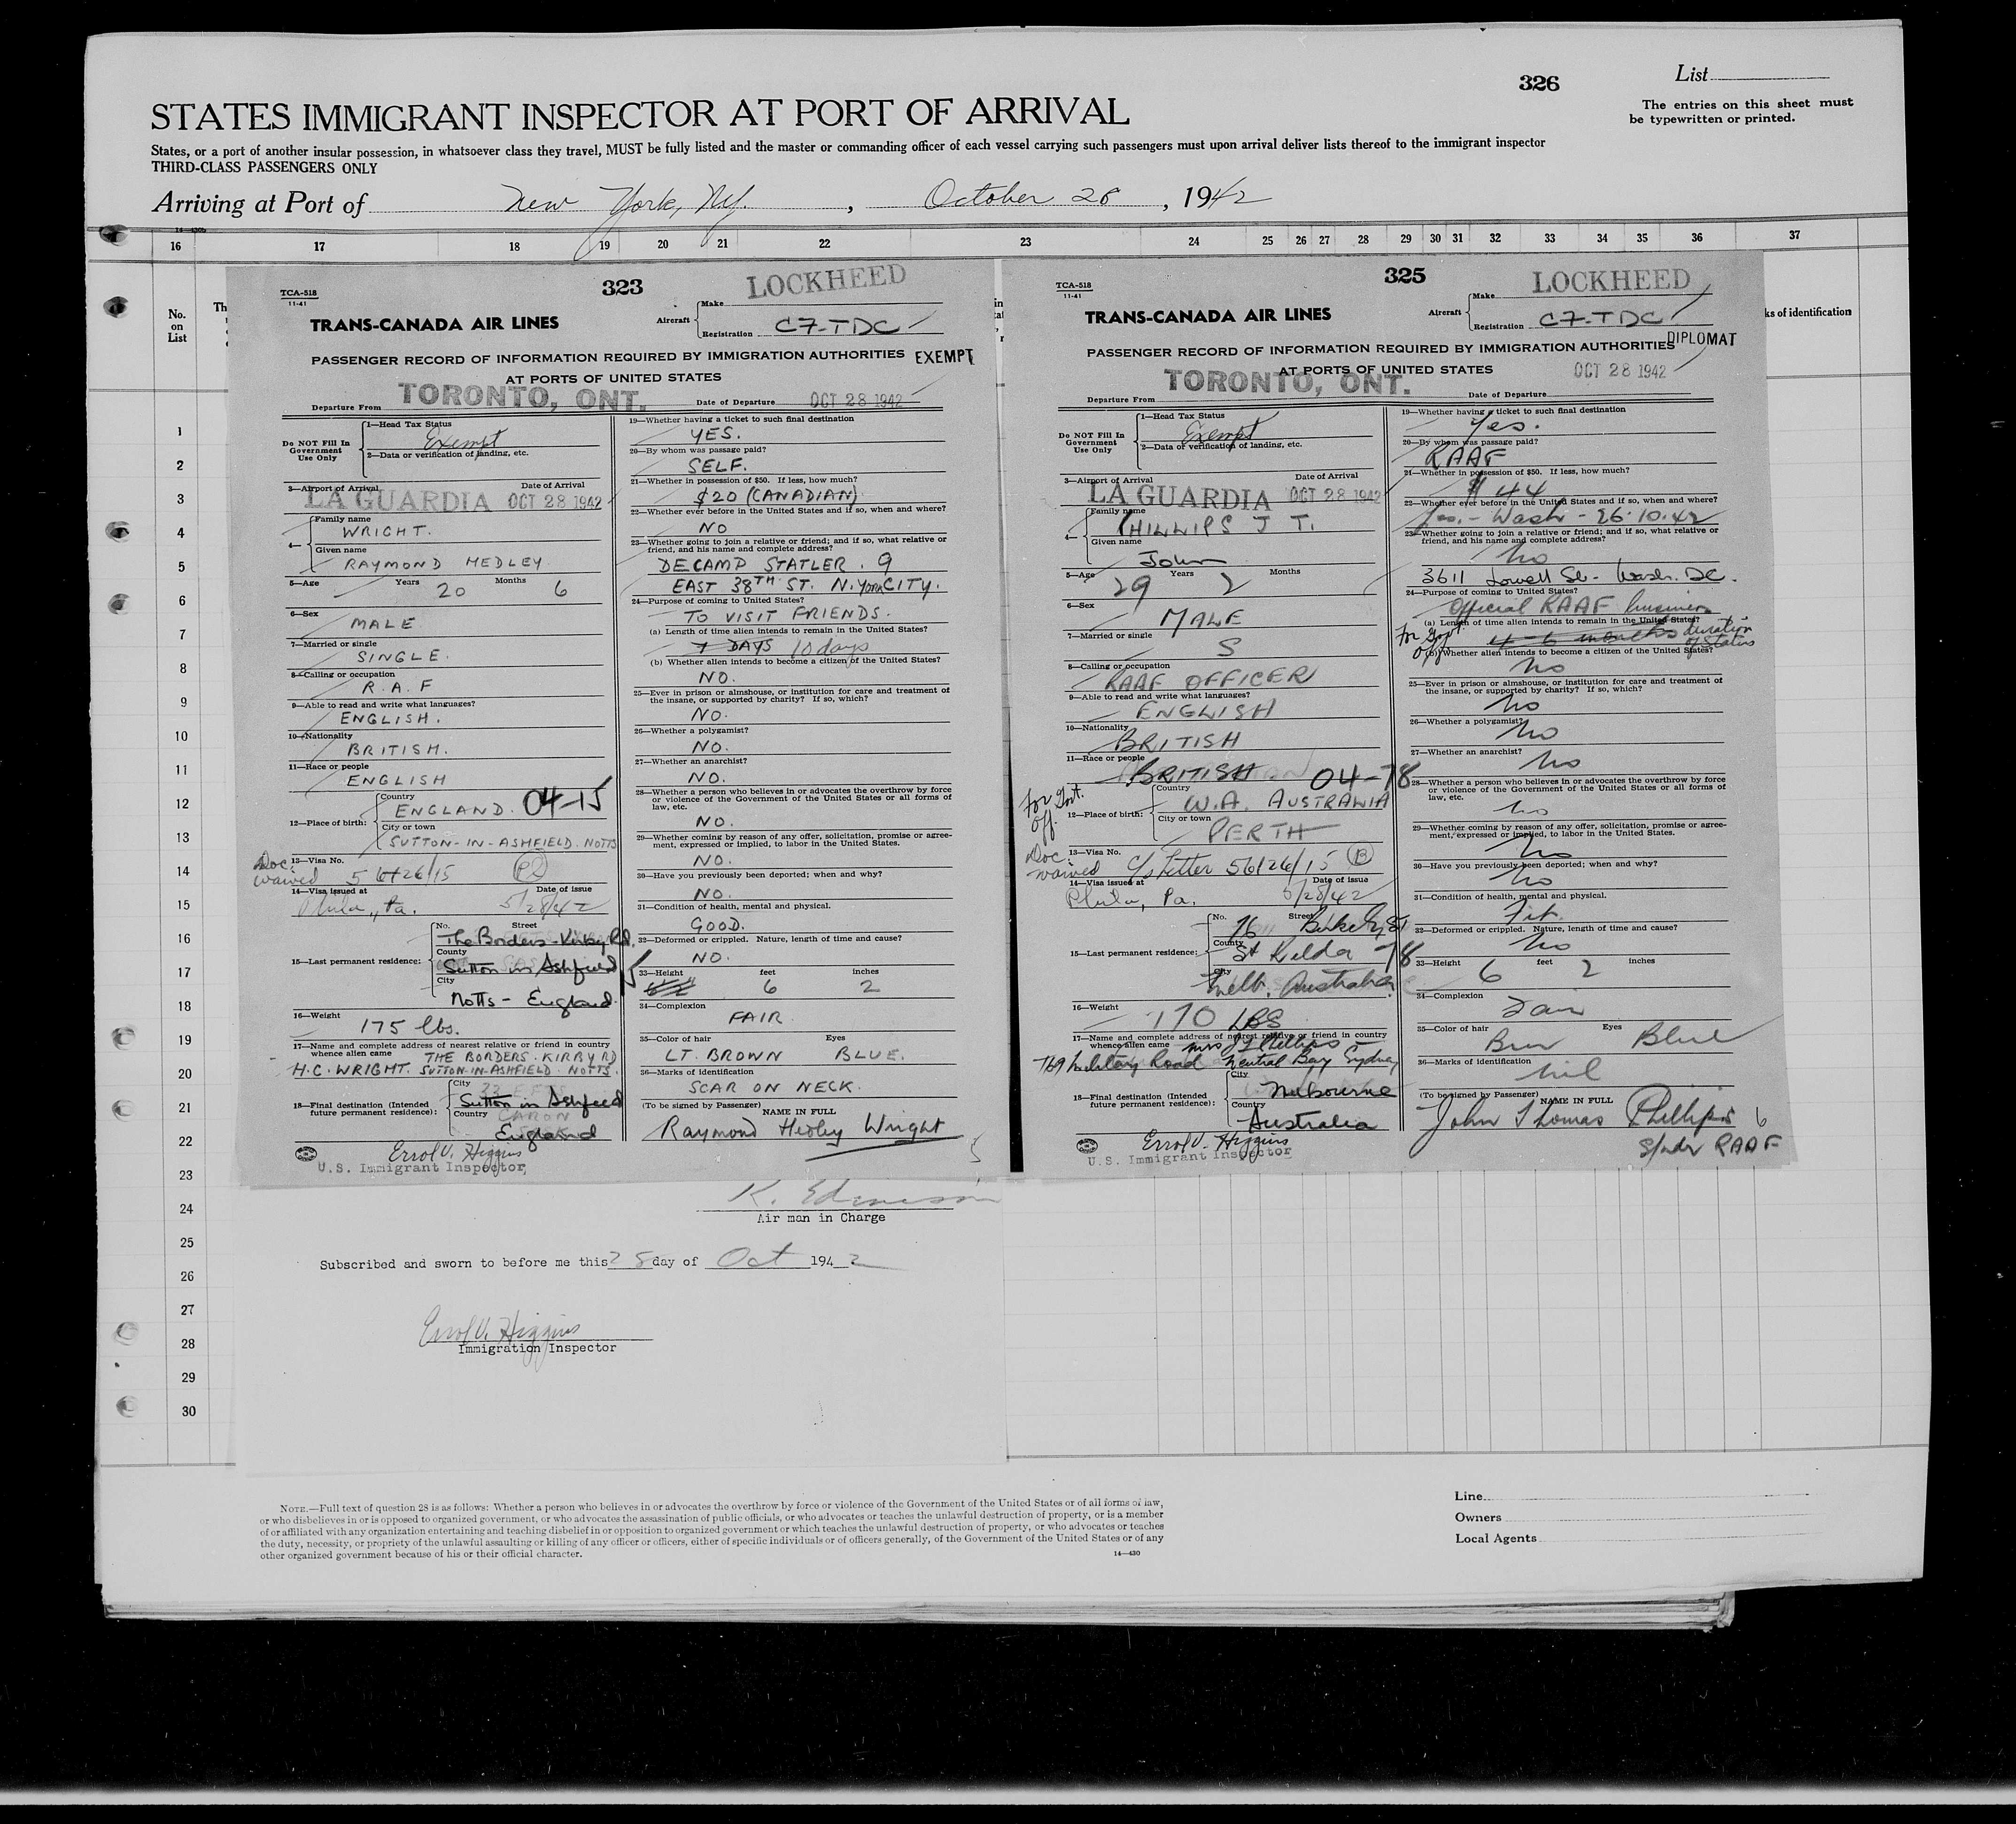 326
List
The entries on this sheet must
be typewritten or printed.
STATES IMMIGRANT INSPECTOR AT PORT OF ARRIVAL
States, or a port of another insular possession, in whatsoever class they travel, MUST be fully listed and the master or commanding officer of each vessel carrying such passengers must upon arrival deliver lists thereof to the immigrant inspector
THIRD-CLASS PASSENGERS ONLY
Arriving at Port of New York, NY. , October 28 , 1942
16 17 18 19 20 21 22 23 24 25 26 27 28 29 30 31 32 33 34 35 36 37
No.
on
List
ks of identification
1
2
3
4
5
6
7
8
9
10
11
12
13
14
15
16
17
18
19
20
21
22
23
24
25
26
27
28
29
30
TCA-518
11-41
323
LOCKHEED
TRANS-CANADA AIR LINES
Aircraft Make
Registration CF-TDC
PASSENGER RECORD OF INFORMATION REQUIRED BY IMMIGRATION AUTHORITIES EXEMPT
AT PORTS OF UNITED STATES
Departure From TORONTO, ONT. Date of Departure OCT 28 1942
Do NOT Fill In
Government
Use Only
1—Head Tax Status
Exempt
2—Data or verification of landing, etc.
3—Airport of Arrival Date of Arrival
LA GUARDIA OCT 28 1942
4— Family name
WRIGHT.
Given name
RAYMOND HEDLEY
5—Age Years Months
20 6
6—Sex
MALE
7—Married or single
SINGLE.
8—Calling or occupation
R.A.F
9—Able to read and write what languages?
ENGLISH.
10—Nationality
BRITISH.
11—Race or people
ENGLISH
12—Place of birth: Country
ENGLAND. 04-15
City or town
SUTTON-IN-ASHFIELD. NOTTS
Doc.
waived
13—Visa No.
14—Visa issued at Date of issue
Phila., Pa. 5/28/42
15—Last permanent residence:
No. Street
The Borders - Kirby Rd.
County
Sutton in Ashfield 15
City
Notts - England
16—Weight
175 lbs.
17—Name and complete address of nearest relative or friend in country
whence alien came THE BORDERS. KIRBY RD
H.C. WRIGHT. SUTTON-IN-ASHFIELD. NOTTS.
18—Final destination (Intended
future permanent residence):
City
Sutton in Ashfield
Country
England
Errol V. Higgins
U.S. Immigrant Inspector
19—Whether having a ticket to such final destination
YES.
20—By whom was passage paid?
SELF.
21—Whether in possession of $50. If less, how much?
$20 (CANADIAN)
22—Whether ever before in the United States and if so, when and where?
NO
23—Whether going to join a relative or friend; and if so, what relative or
friend, and his name and complete address?
DECAMP STATLER. 9
EAST 38TH ST. N. YORK CITY.
24—Purpose of coming to United States?
TO VISIT FRIENDS.
(a) Length of time alien intends to remain in the United States?
7 DAYS 10 days
(b) Whether alien intends to become a citizen of the United States?
NO.
25—Ever in prison or almshouse, or institution for care and treatment of
the insane, or supported by charity? If so, which?
NO.
26—Whether a polygamist?
NO.
27—Whether an anarchist?
NO.
28—Whether a person who believes in or advocates the overthrow by force
or violence of the Government of the United States or all forms of
law, etc.
NO.
29—Whether coming by reason of any offer, solicitation, promise or agree-
ment, expressed or implied, to labor in the United States.
NO.
30—Have you previously been deported; when and why?
NO.
31—Condition of health, mental and physical.
GOOD.
32—Deformed or crippled. Nature, length of time and cause?
NO.
33—Height feet inches
6 2
34—Complexion
FAIR
35—Color of hair Eyes
LT. BROWN BLUE.
36—Marks of identification
SCAR ON NECK.
(To be signed by Passenger) NAME IN FULL
Raymond Hedley Wright
TCA-518
11-41
325
LOCKHEED
TRANS-CANADA AIR LINES
Aircraft Make
Registration CF-TDC
DIPLOMAT
PASSENGER RECORD OF INFORMATION REQUIRED BY IMMIGRATION AUTHORITIES
AT PORTS OF UNITED STATES OCT 28 1942
Departure From TORONTO, ONT. Date of Departure
Do NOT Fill In
Government
Use Only
1—Head Tax Status
Exempt
2—Data or verification of landing, etc.
3—Airport of Arrival Date of Arrival
LA GUARDIA OCT 28 1942
4— Family name
PHILLIPS J T.
Given name
John
5—Age Years Months
29 2
6—Sex
MALE
7—Married or single
S
8—Calling or occupation
RAAF OFFICER
9—Able to read and write what languages?
ENGLISH
10—Nationality
BRITISH
11—Race or people
BRITISH 04-78
For Govt.
Off.
12—Place of birth: Country
W.A. AUSTRALIA
City or town
PERTH
Doc.
waived
13—Visa No.
Letter 56/26/15
14—Visa issued at Date of issue
Phila, Pa. 5/28/42
15—Last permanent residence:
No. Street
76
County
St Kilda -78
City
Melb. Australia
16—Weight
170 LBS
17—Name and complete address of nearest relative or friend in country
whence alien came Mrs J T Phillips
769 Military Road Neutral Bay Sydney
18—Final destination (Intended
future permanent residence):
City
Melbourne
Country
Australia
Errol V. Higgins
U.S. Immigrant Inspector
19—Whether having a ticket to such final destination
Yes.
20—By whom was passage paid?
RAAF
21—Whether in possession of $50. If less, how much?
$44
22—Whether ever before in the United States and if so, when and where?
Yes. - Wash - 26.10.42
23—Whether going to join a relative or friend; and if so, what relative or
friend, and his name and complete address?
No
3611 Lowell St. - Wash. DC.
24—Purpose of coming to United States?
Official RAAF business
(a) Length of time alien intends to remain in the United States?
For Govt. Off. 4-6 months duration of status
(b) Whether alien intends to become a citizen of the United States?
No
25—Ever in prison or almshouse, or institution for care and treatment of
the insane, or supported by charity? If so, which?
No
26—Whether a polygamist?
No
27—Whether an anarchist?
No
28—Whether a person who believes in or advocates the overthrow by force
or violence of the Government of the United States or all forms of
law, etc.
No
29—Whether coming by reason of any offer, solicitation, promise or agree-
ment, expressed or implied, to labor in the United States.
No
30—Have you previously been deported; when and why?
No
31—Condition of health, mental and physical.
Fit.
32—Deformed or crippled. Nature, length of time and cause?
No
33—Height feet inches
6 2
34—Complexion
Fair
35—Color of hair Eyes
Brn Blue
36—Marks of identification
Nil
(To be signed by Passenger) NAME IN FULL
John Thomas Phillips
S/Ldr RAAF
Air man in Charge
Subscribed and sworn to before me this 28 day of Oct 1942
Errol V. Higgins
Immigration Inspector
NOTE.—Full text of question 28 is as follows: Whether a person who believes in or advocates the overthrow by force or violence of the Government of the United States or of all forms of law,
or who disbelieves in or is opposed to organized government, or who advocates the assassination of public officials, or who advocates or teaches the unlawful destruction of property, or is a member
of or affiliated with any organization entertaining and teaching disbelief in or opposition to organized government or which teaches the unlawful destruction of property, or who advocates or teaches
the duty, necessity, or propriety of the unlawful assaulting or killing of any officer or officers, either of specific individuals or of officers generally, of the Government of the United States or of any
other organized government because of his or their official character.
14—430
Line
Owners
Local Agents